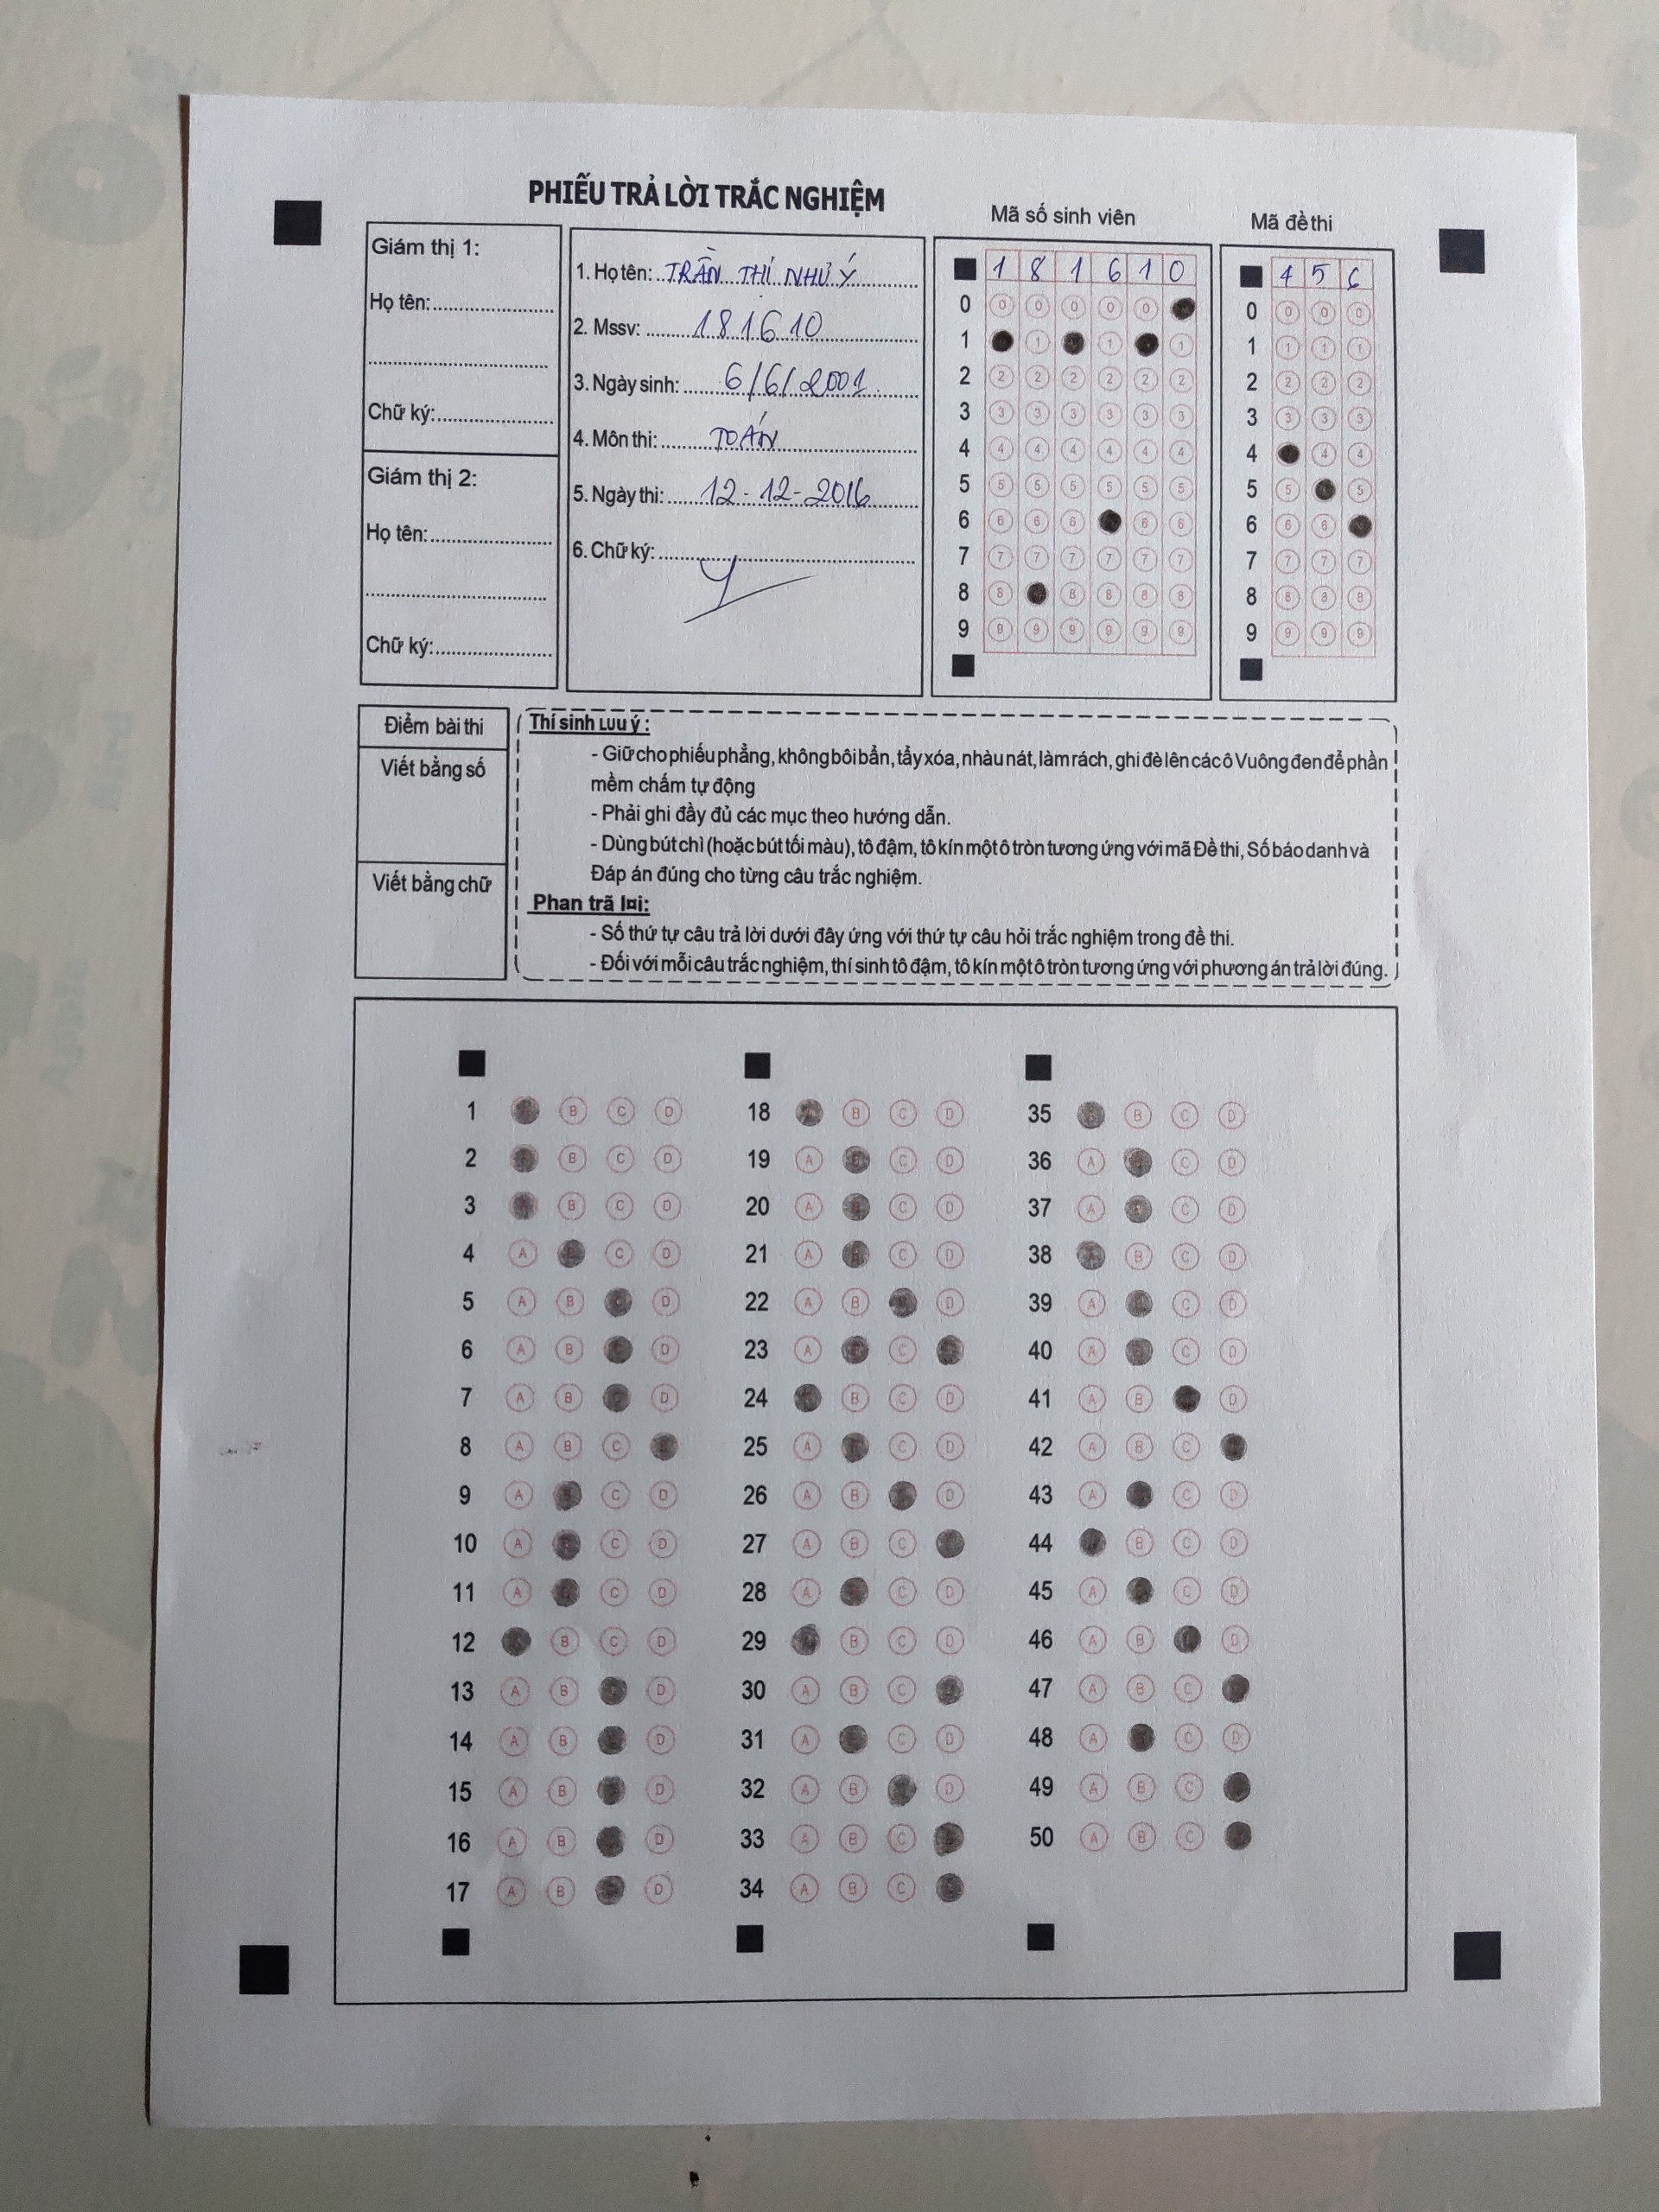 PHIẾU TRẢ LỜI TRẮC NGHIỆM
Mã số sinh viên
Mã đề thi
Giám thị 1:
Họ tên:
Chữ ký:
Giám thị 2:
Họ tên:
Chữ ký:
1. Họ tên: TRẦN THỊ NHƯ Ý
2. Mssv: 181610
3. Ngày sinh: 6/6/2001
4. Môn thi: TOÁN
5. Ngày thi: 12-12-2016
6. Chữ ký:
1 8 1 6 1 0
0 0 0 0 0 0
1 1 1 1
2 2 2 2 2 2 2
3 3 3 3 3 3 3
4 4 4 4 4 4 4
5 5 5 5 5 5 5
6 6 6 6 6 6
7 7 7 7 7 7 7
8 8 8 8 8 8
9 9 9 9 9 9 9
4 5 6
0 0 0 0
1 1 1 1
2 2 2 2
3 3 3 3
4 4 4
5 5 5
6 6 6
7 7 7 7
8 8 8 8
9 9 9 9
Điểm bài thi
Viết bằng số
Viết bằng chữ
Thí sinh Lưu ý :
- Giữ cho phiếu phẳng, không bôi bẩn, tẩy xóa, nhàu nát, làm rách, ghi đè lên các ô Vuông đen để phần
mềm chấm tự động
- Phải ghi đầy đủ các mục theo hướng dẫn.
- Dùng bút chì (hoặc bút tối màu), tô đậm, tô kín một ô tròn tương ứng với mã Đề thi, Số báo danh và
Đáp án đúng cho từng câu trắc nghiệm.
Phan trã l¤i:
- Số thứ tự câu trả lời dưới đây ứng với thứ tự câu hỏi trắc nghiệm trong đề thi.
- Đối với mỗi câu trắc nghiệm, thí sinh tô đậm, tô kín một ô tròn tương ứng với phương án trả lời đúng.
1 B C D
2 B C D
3 B C D
4 A C D
5 A B D
6 A B D
7 A B D
8 A B C
9 A C D
10 A C D
11 A C D
12 B C D
13 A B D
14 A B D
15 A B D
16 A B D
17 A B D
18 B C D
19 A C D
20 A C D
21 A C D
22 A B D
23 A C
24 B C D
25 A C D
26 A B D
27 A B C
28 A C D
29 B C D
30 A B C
31 A C D
32 A B D
33 A B C
34 A B C
35 B C D
36 A C D
37 A C D
38 B C D
39 A C D
40 A C D
41 A B D
42 A B C
43 A C D
44 B C D
45 A C D
46 A B D
47 A B C
48 A C D
49 A B C
50 A B C